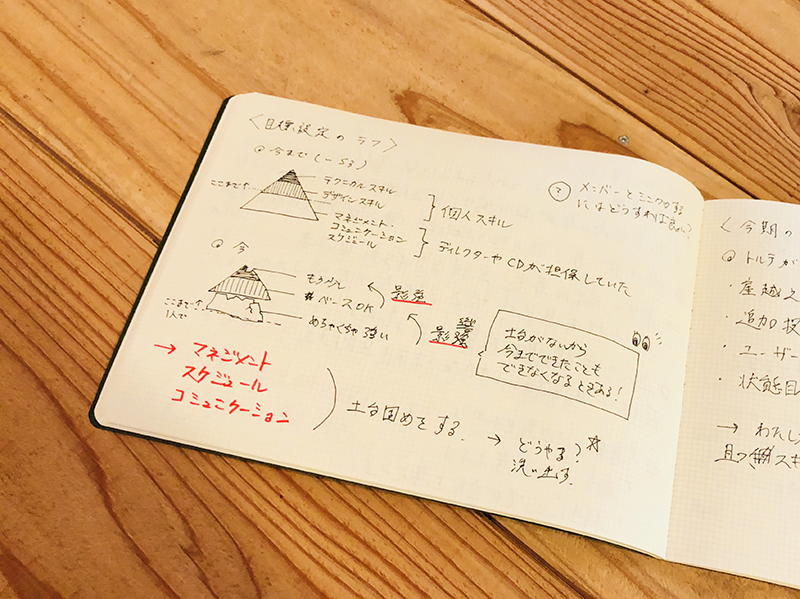 〈目標設定のラフ〉
今まで(〜53)
ここまで↑
テクニカルスキル
デザインスキル
マネジメント・
コミュニケーション
スケジュール
個人スキル
ディレクターやCDが担保していた
今
ここまで↑
1人で
もう少し
ベースOK
めちゃくちゃ強い
影響
影響
土台がないから
今までできたことも
できなくなるときある!
→ マネジメント
スケジュール
コミュニケーション
土台固めをする。
→ どうやる?
洗い出す。
? メンバーとミニクロする
にはどうすれば良い?
〈今期の
トルテが
・座越え
・追加投
・ユーザー
・状態目
→ わたし
且つ
スキ